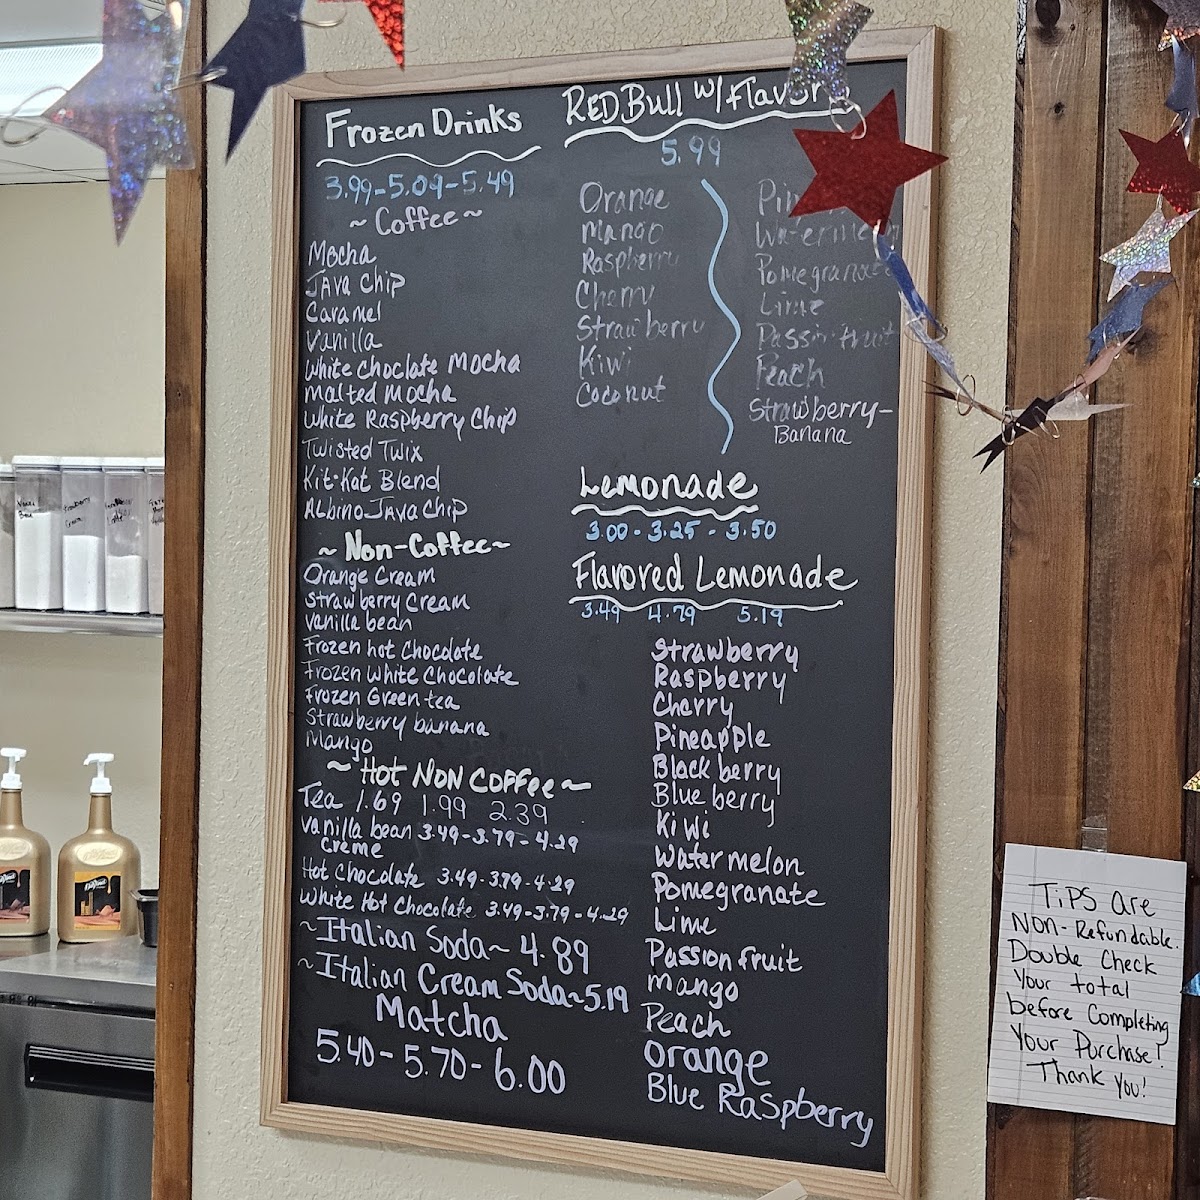 Frozen Drinks
3.99-5.09-5.49
~ Coffee ~
Mocha
JAVA Chip
Caramel
Vanilla
White Choclate Mocha
Malted Mocha
White Raspberry Chip
Twisted Twix
Kit-Kat Blend
Albino JAVA Chip
~ Non-Coffee ~
Orange Cream
Strawberry Cream
Vanilla bean
Frozen hot Chocolate
Frozen White Chocolate
Frozen Green tea
Strawberry banana
Mango
~ Hot NON COFFee ~
Tea 1.69 1.99 2.39
Vanilla bean 3.49-3.79-4.29
creme
Hot Chocolate 3.49-3.79-4.29
White Hot Chocolate 3.49-3.79-4.29
~Italian Soda~ 4.89
~Italian Cream Soda~5.19
Matcha
5.40-5.70-6.00
REDBull w/ flavor
5.99
Orange
Mango
Raspberry
Cherry
Strawberry
Kiwi
Coconut
Watermelon
Pomegranate
Lime
Passionfruit
Peach
Strawberry-
Banana
Lemonade
3.00 - 3.25 - 3.50
Flavored Lemonade
3.49 4.79 5.19
Strawberry
Raspberry
Cherry
Pineapple
Blackberry
Blueberry
Kiwi
Watermelon
Pomegranate
Lime
Passion fruit
Mango
Peach
Orange
Blue Raspberry
TiPS are
Non-Refundable.
Double Check
Your total
before Completing
Your Purchase!
Thank You!